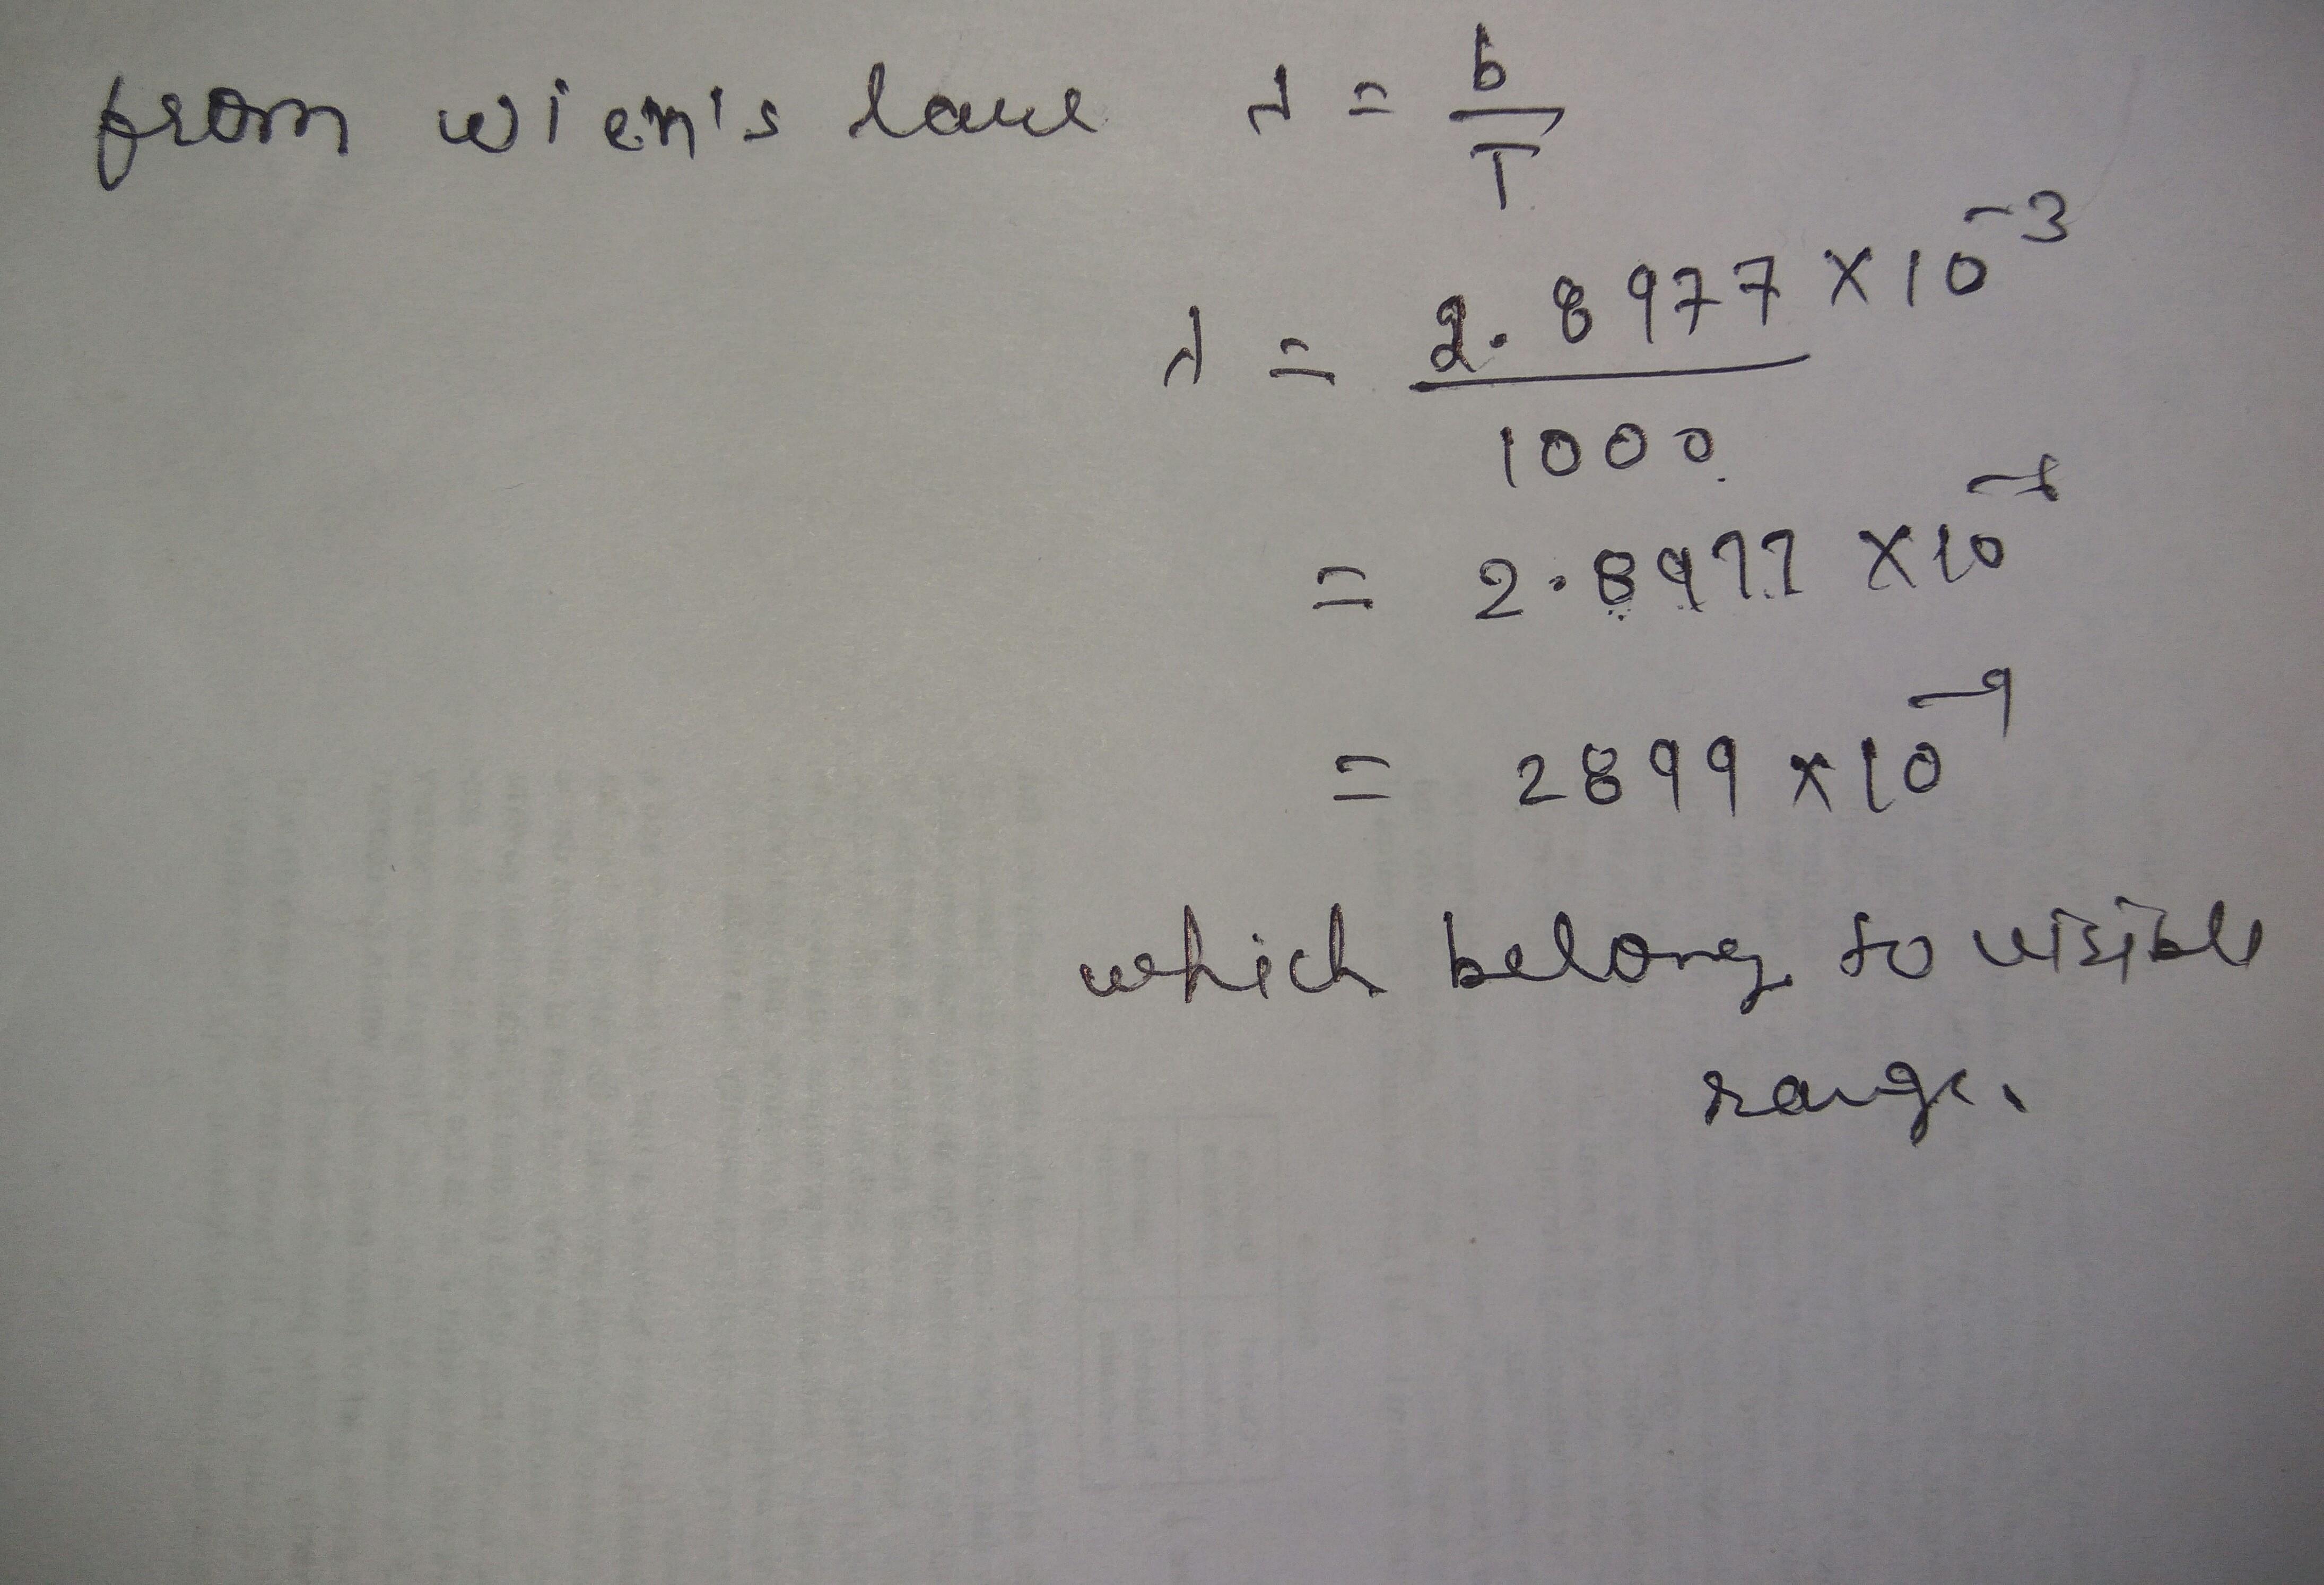 from wien's lawe λ = b/T
λ = 2.8977 × 10⁻³ / 1000
= 2.8977 × 10⁻⁶
= 2899 × 10⁻⁹
which belong to visible
range.